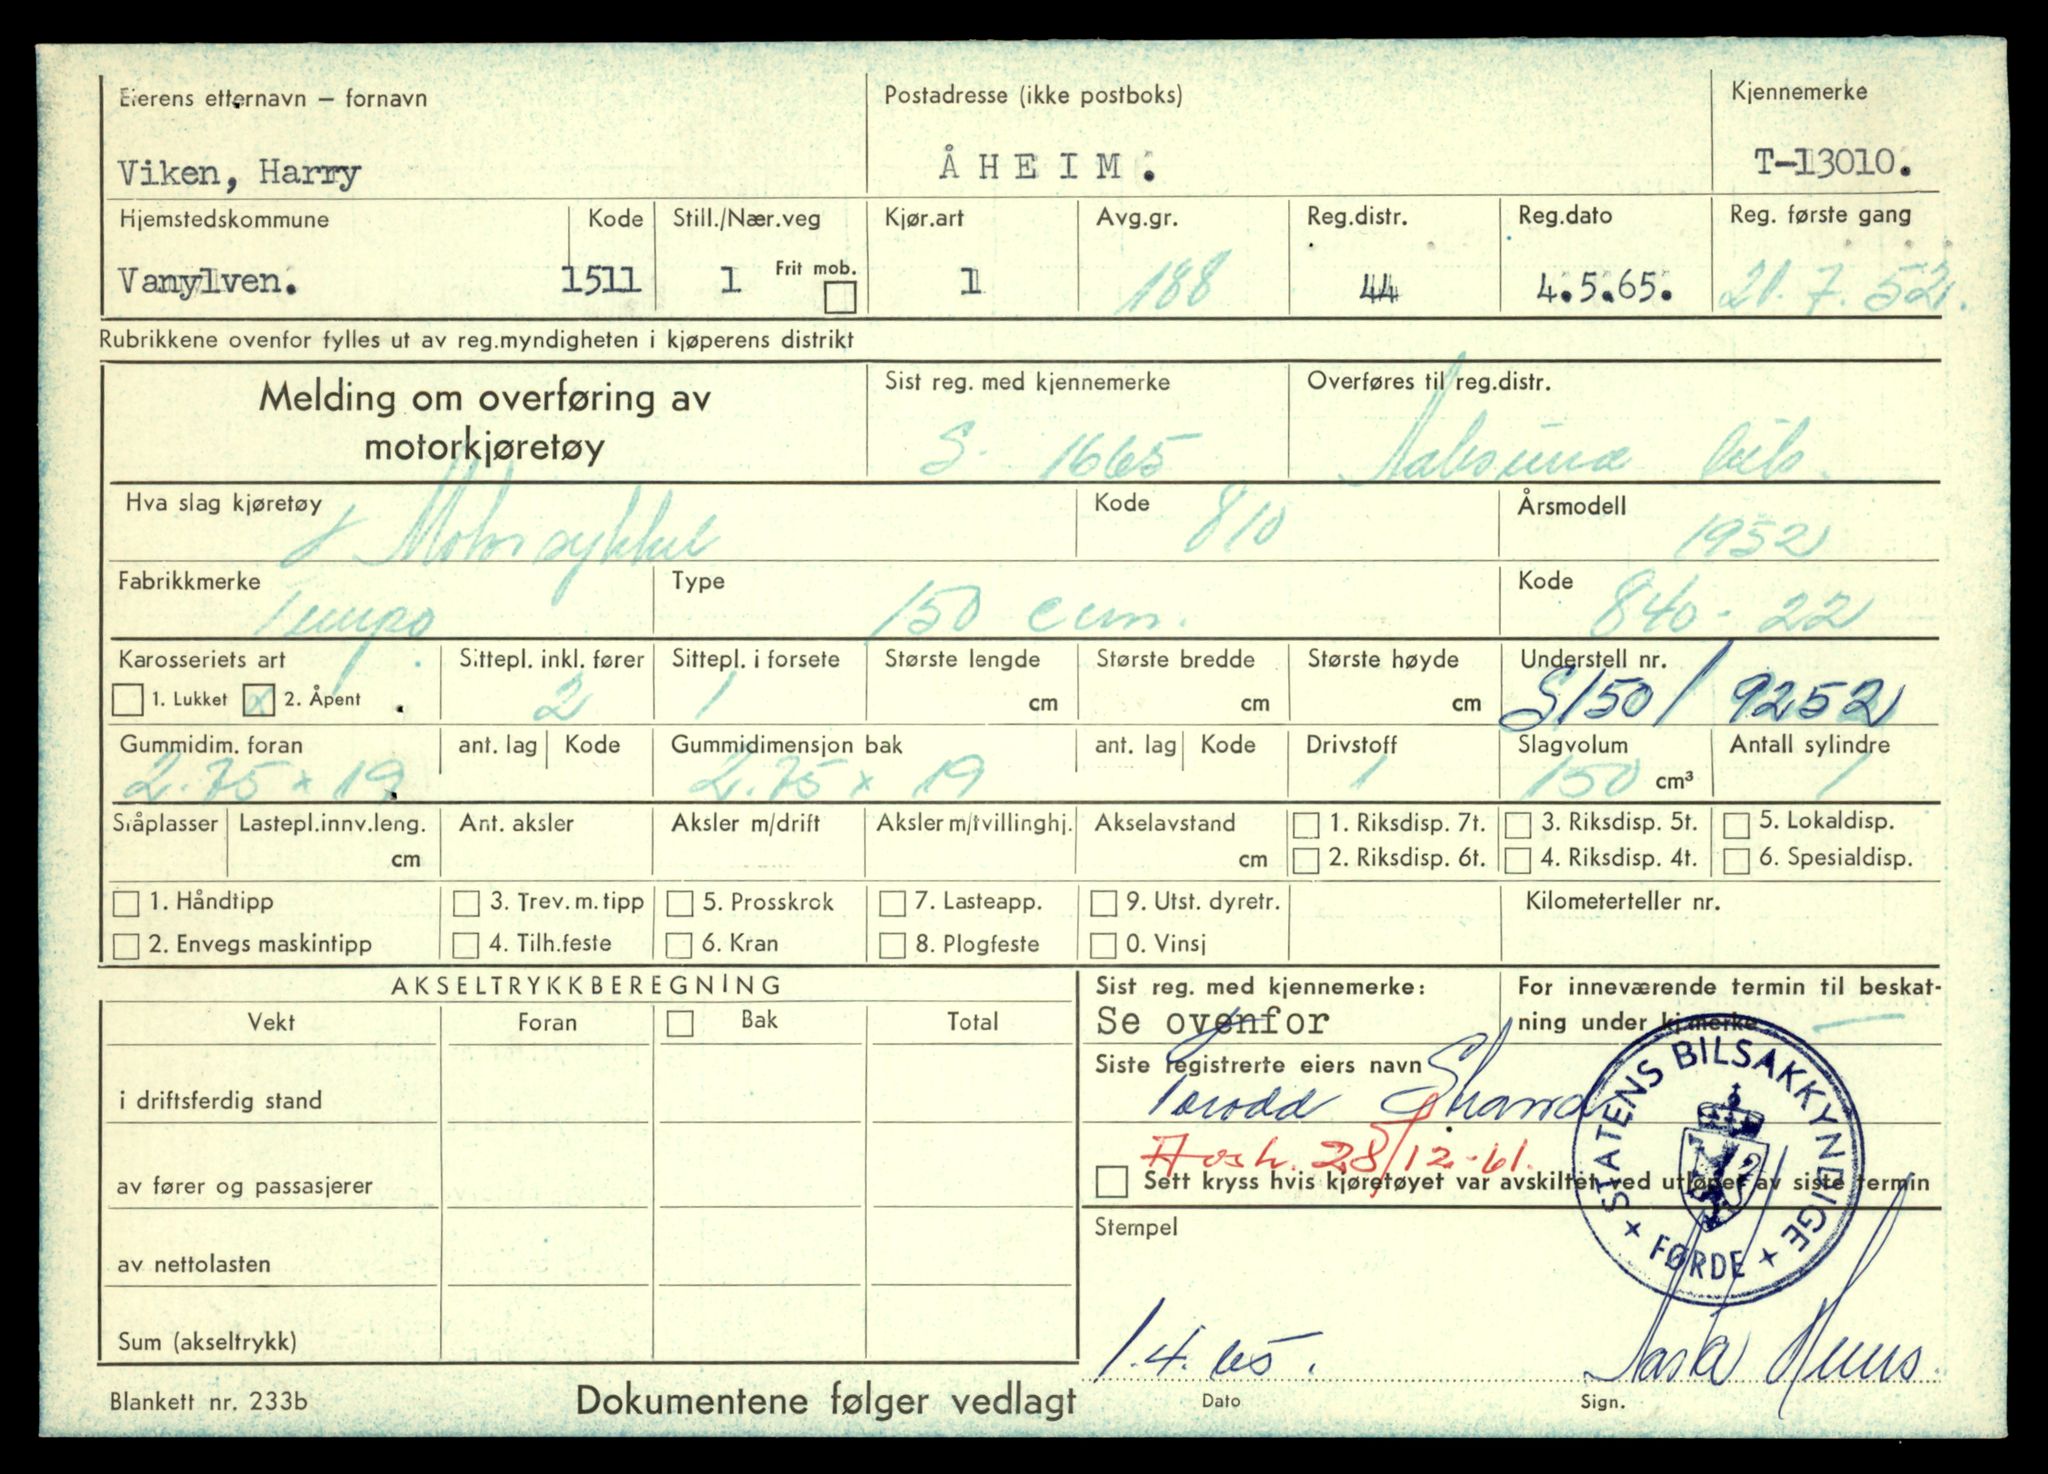 Eierens etternavn – fornavn
Postadresse (ikke postboks)
Kjennemerke
Viken, Harry
ÅHEIM.
T-13010.
Hjemstedskommune
Kode
Still./Nær.veg
Kjør.art
Avg.gr.
Reg.distr.
Reg.dato
Reg. første gang
Vanylven.
1511
1
Frit mob.
1
188
44
4.5.65.
21.7.52.
Rubrikkene ovenfor fylles ut av reg.myndigheten i kjøperens distrikt
Melding om overføring av
motorkjøretøy
Sist reg. med kjennemerke
Overføres til reg.distr.
S. 1665
Aalesund bils.
Hva slag kjøretøy
Kode
Årsmodell
Motorsykkel
810
1952
Fabrikkmerke
Type
Kode
Tempo
150 ccm.
840-22
Karosseriets art
Sittepl. inkl. fører
Sittepl. i forsete
Største lengde
Største bredde
Største høyde
Understell nr.
1. Lukket
x 2. Åpent
2
1
cm
cm
cm
S150/9252
Gummidim. foran
ant. lag
Kode
Gummidimensjon bak
ant. lag
Kode
Drivstoff
Slagvolum
Antall sylindre
2.75 x 19
2.75 x 19
1
150 cm³
1
Slåplasser
Lastepl.innv.leng.
Ant. aksler
Aksler m/drift
Aksler m/tvillinghj.
Akselavstand
1. Riksdisp. 7t.
3. Riksdisp. 5t.
5. Lokaldisp.
cm
cm
2. Riksdisp. 6t.
4. Riksdisp. 4t.
6. Spesialdisp.
1. Håndtipp
3. Trev. m. tipp
5. Prosskrok
7. Lasteapp.
9. Utst. dyretr.
Kilometerteller nr.
2. Envegs maskintipp
4. Tilh.feste
6. Kran
8. Plogfeste
0. Vinsj
AKSELTRYKKBEREGNING
Vekt
Foran
Bak
Total
i driftsferdig stand
av fører og passasjerer
av nettolasten
Sum (akseltrykk)
Sist reg. med kjennemerke:
Se ovenfor
For inneværende termin til beskat-
ning under kj.merke —
Siste registrerte eiers navn
Parodd Strand
28/12-61.
Sett kryss hvis kjøretøyet var avskiltet ved utløpet av siste termin
Stempel
STATENS BILSAKKYNDIGE
FØRDE
1.4.65.
Dato
Sign.
Blankett nr. 233b
Dokumentene følger vedlagt